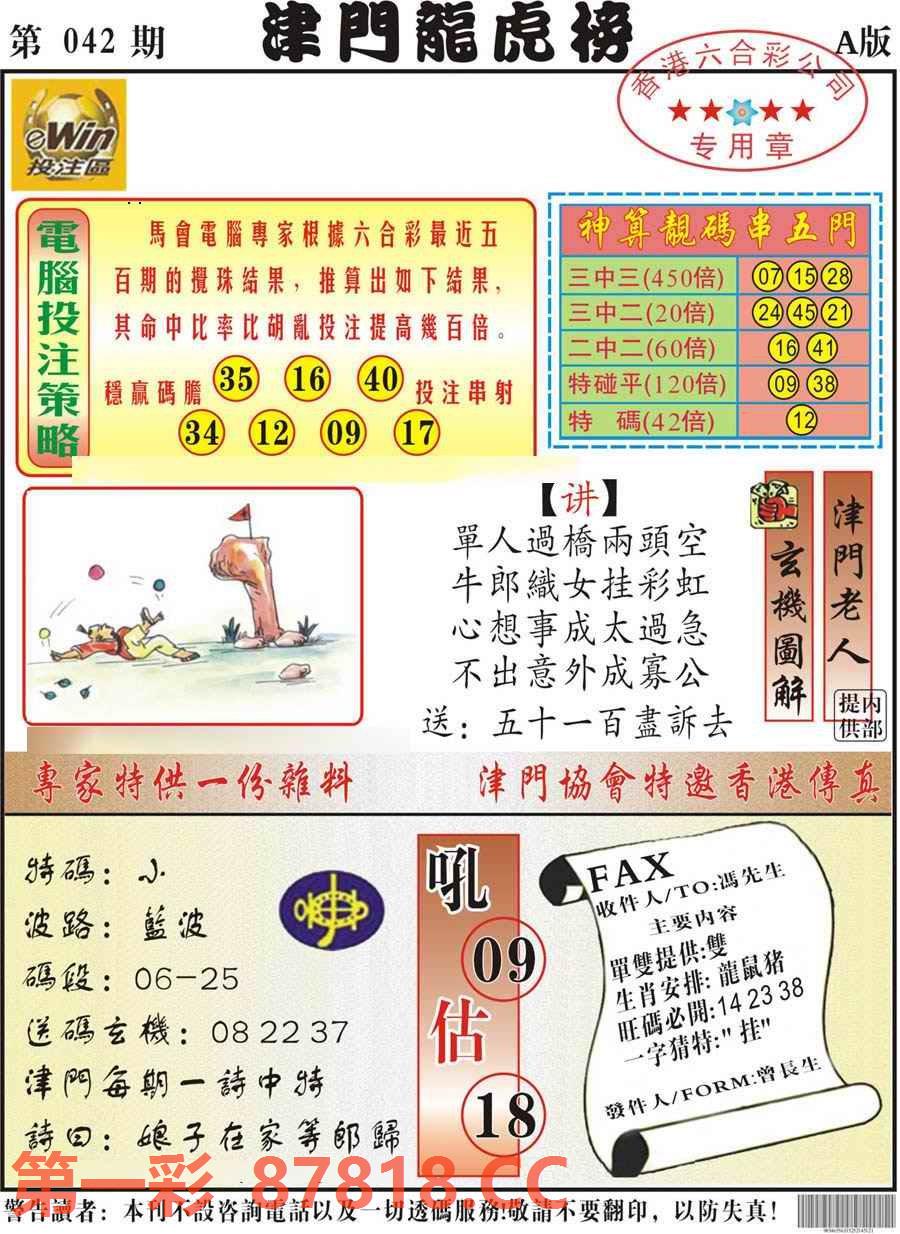 第 042 期
津門龍虎榜
A版
香港六合彩公司
专用章
eWin
投注區
電腦投注策略
馬會電腦專家根據六合彩最近五
百期的攪珠結果，推算出如下結果，
其命中比率比胡亂投注提高幾百倍。
穩贏碼膽 35 16 40 投注串射
34 12 09 17
神算靚碼串五門
三中三(450倍) 07 15 28
三中二(20倍) 24 45 21
二中二(60倍) 16 41
特碰平(120倍) 09 38
特 碼(42倍) 12
【讲】
單人過橋兩頭空
牛郎織女挂彩虹
心想事成太過急
不出意外成寡公
送：五十一百盡訴去
玄機圖解
津門老人
内部提供
專家特供一份雜料
津門協會特邀香港傳真
特碼：小
波路：藍波
碼段：06-25
送碼玄機：08 22 37
津門每期一詩中特
詩曰：娘子在家等郎歸
吼
09
估
18
FAX
收件人/TO:馮先生
主要内容
單雙提供:雙
生肖安排: 龍鼠猪
旺碼必開:14 23 38
一字猜特:"挂"
發件人/FORM:曾長生
第一彩 87818.CC
警告讀者：本刊不設咨詢電話以及一切透碼服務!敬請不要翻印，以防失真!